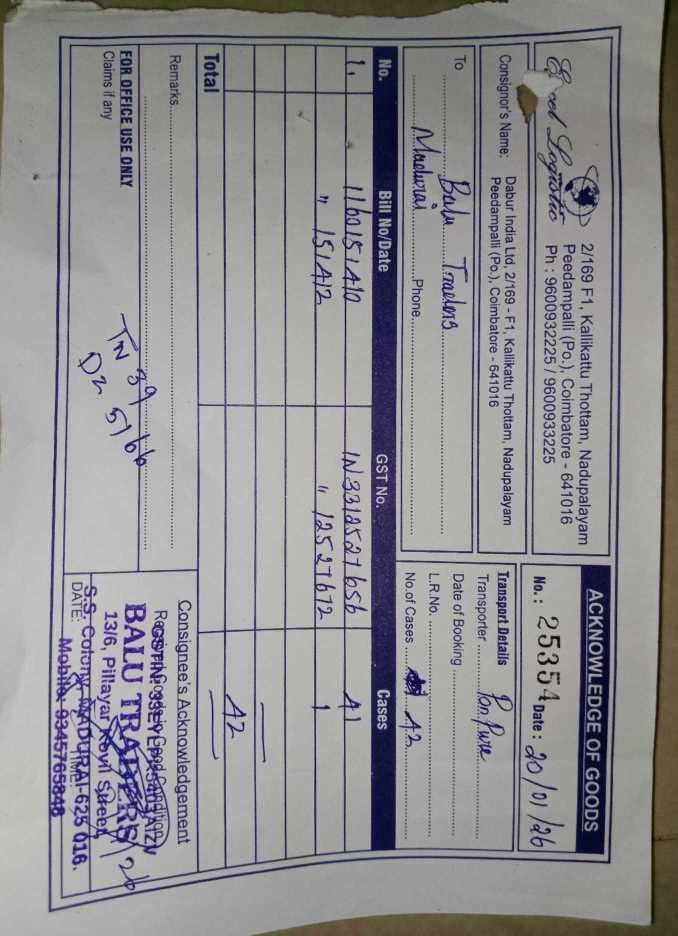 ACKNOWLEDGE OF GOODS
Logistic
2/169 F1, Kallikattu Thottam, Nadupalayam
Peedampalli (Po.), Coimbatore - 641016
Ph : 9600932225 / 9600933225
No. : 25354 Date : 20/01/26
Consignor's Name: Dabur India Ltd, 2/169 - F1, Kallikattu Thottam, Nadupalayam
Peedampalli (Po.), Coimbatore - 641016
To Balu Traders
Madurai Phone
Transport Details
Transporter Pon Pure
Date of Booking
L.R.No.
No.of Cases 42
No. Bill No/Date GST No. Cases
1. 1160151410 IN3312527656 41
" 151412 " 12527672 1
42
Total
Remarks
TN 39
DZ 5166
FOR OFFICE USE ONLY
Claims if any
Consignee's Acknowledgement
BALU TRADERS
13/6, Pillayar Kovil Street,
S.S. Colony, MADURAI-625 016.
DATE: TIME:
Mobile: 9345765848